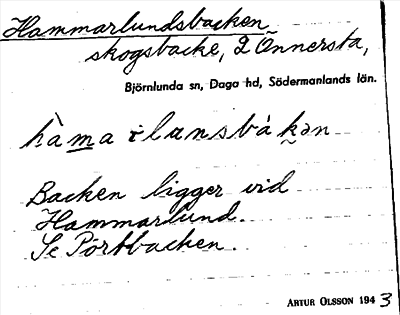 Hammarlundsbacken
skogsbacke, 2 Önnersta,
Björnlunda sn, Daga hd, Södermanlands län.
hàmaɩlansbákən
Backen ligger vid
Hammarlund.
Se Pörtbacken.
ARTUR OLSSON 1943